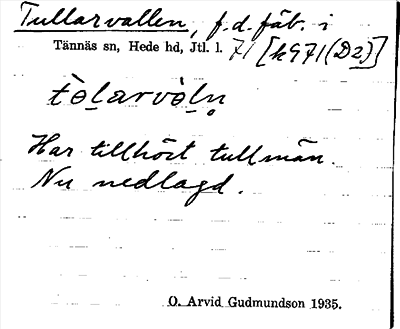 Tullarvallen, f.d. fäb. i
Tännäs sn, Hede hd, Jtl. l. 71 [k971(D2)]
tòḷarvòḷn̥
Har tillhört tullmän.
Nu nedlagd.
O. Arvid Gudmundson 1935.